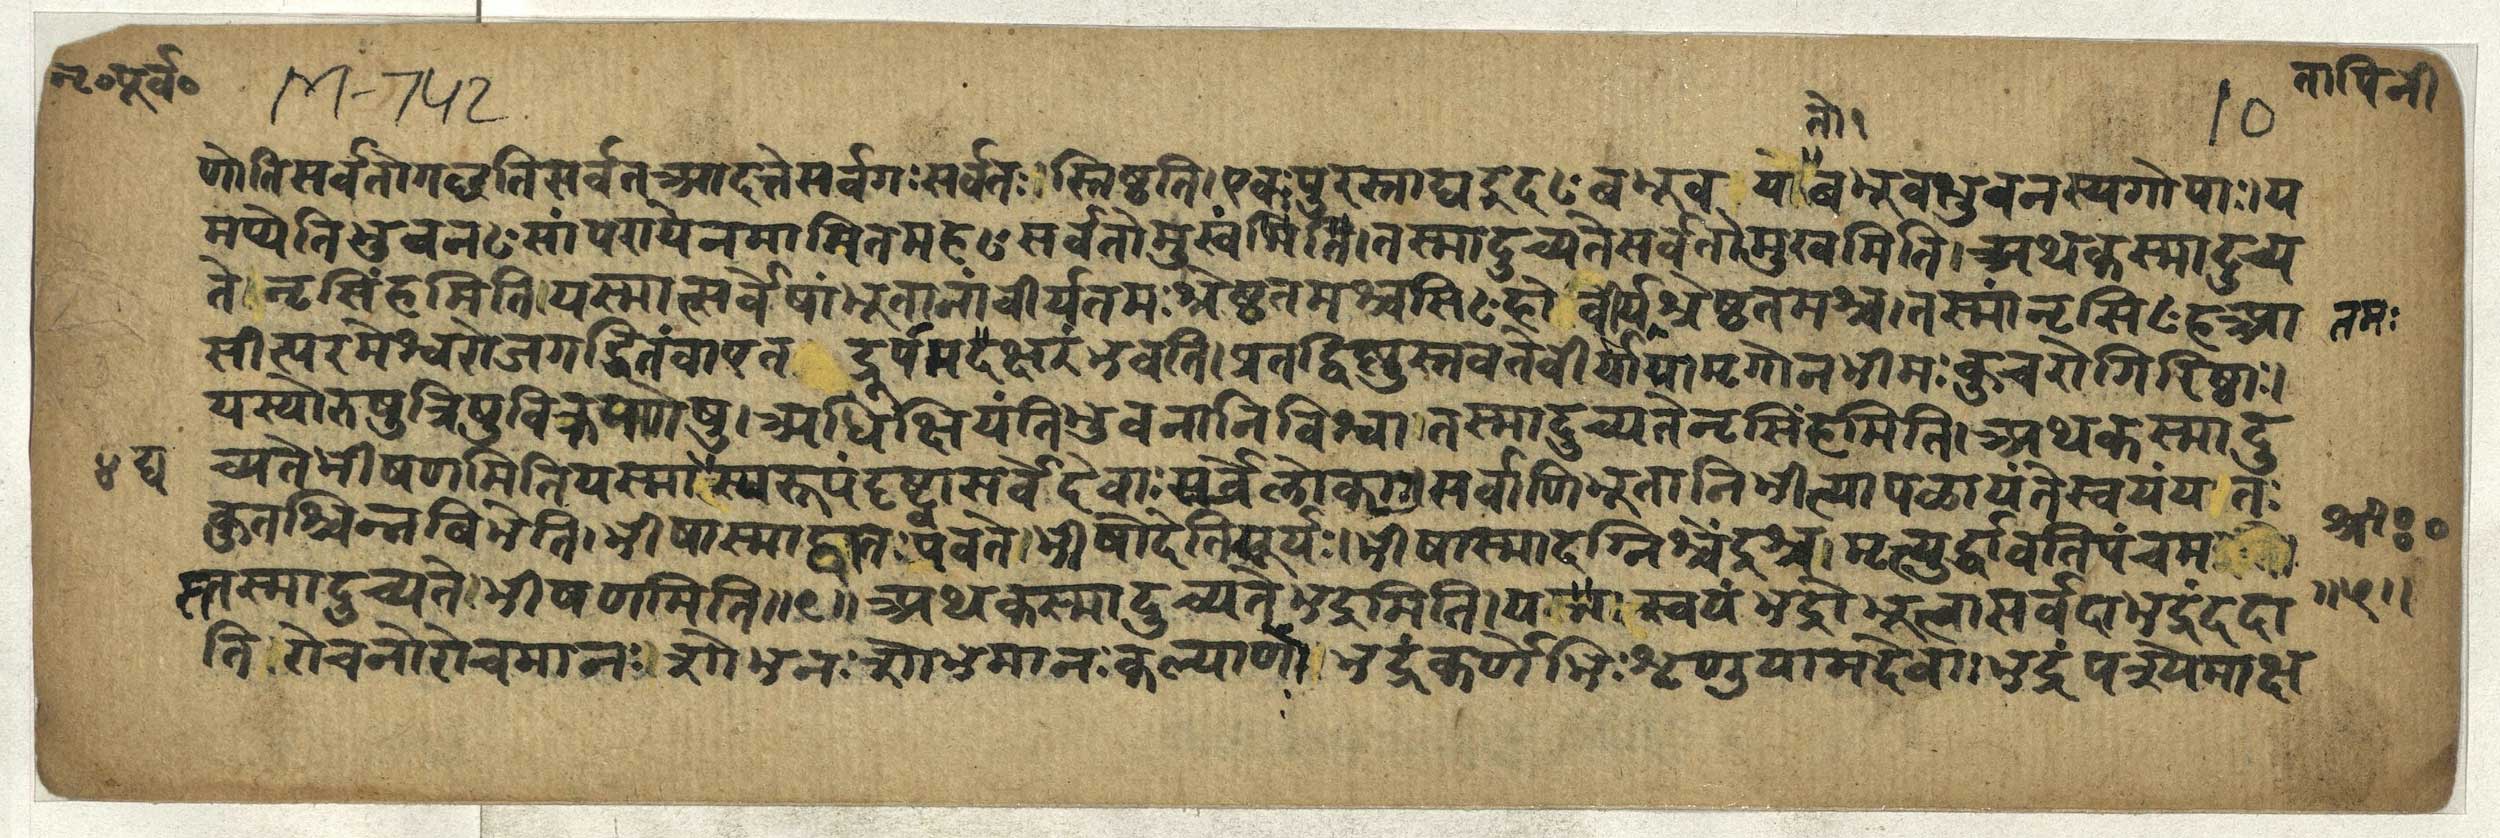 नृ॰पूर्व॰
M-742
10
तापिनी
तो।
णोति सर्वतो गछति सर्वत आदत्ते सर्वगः सर्वतः। स्तिष्ठति। एकः पुरस्ताद्य इदꣳ बभूव यो बभूव भुवनस्य गोपाः। य
मप्येति भुवनꣳ सांपराये नमामि तमहꣳ सर्वतोमुखंमिति। तस्मादुच्यते सर्वतोमुखमिति। अथ कस्मादुच्य
ते। नृसिंहमिति। यस्मात्सर्वेषां भूतानां वीर्यतमः श्रेष्ठतमश्च सिꣳहो वीर्यश्रेष्ठतमश्च। तस्मांनृसिꣳह आ
तमः
सीत्परमेश्वरो जगद्धितं वा एतद्रूपं मदक्षरं भवति। प्रतद्विष्णु स्तवते वीर्याय मृगो न भीमः कुचरो गिरिष्ठाः।
यस्योरुषु त्रिषु विक्रमणेषु। अधिक्षियंति भुवनानि विश्वा। तस्मादुच्यते नृसिंहमिति। अथ कस्मादु
४ द्य
च्यते भीषणमिति यस्मा स्य रूपं दृष्ट्वा सर्वे देवाः सर्वे लोकाः सर्वाणि भूतानि भीत्या पळायंते स्वयं यतः
कुतश्चिन्न विभेति। भीषास्माद्वातः पवते। भीषोदेति सूर्यः। भीषास्मादग्निश्चेंद्रश्च। मृत्युर्द्धावति पंचम
स्तस्मादुच्यते। भीषणमिति॥९॥ अथ कस्मादुच्यते भद्रमिति। यस्मा स्वयं भद्रो भूत्वा सर्वदा भद्रं ददा
॥५॥
ति रोचनो रोचमानः। शोभनः शोभमानः कल्याणो। भद्रं कर्णेभिः शृणुयाम देवा। भद्रं पश्येमाक्ष